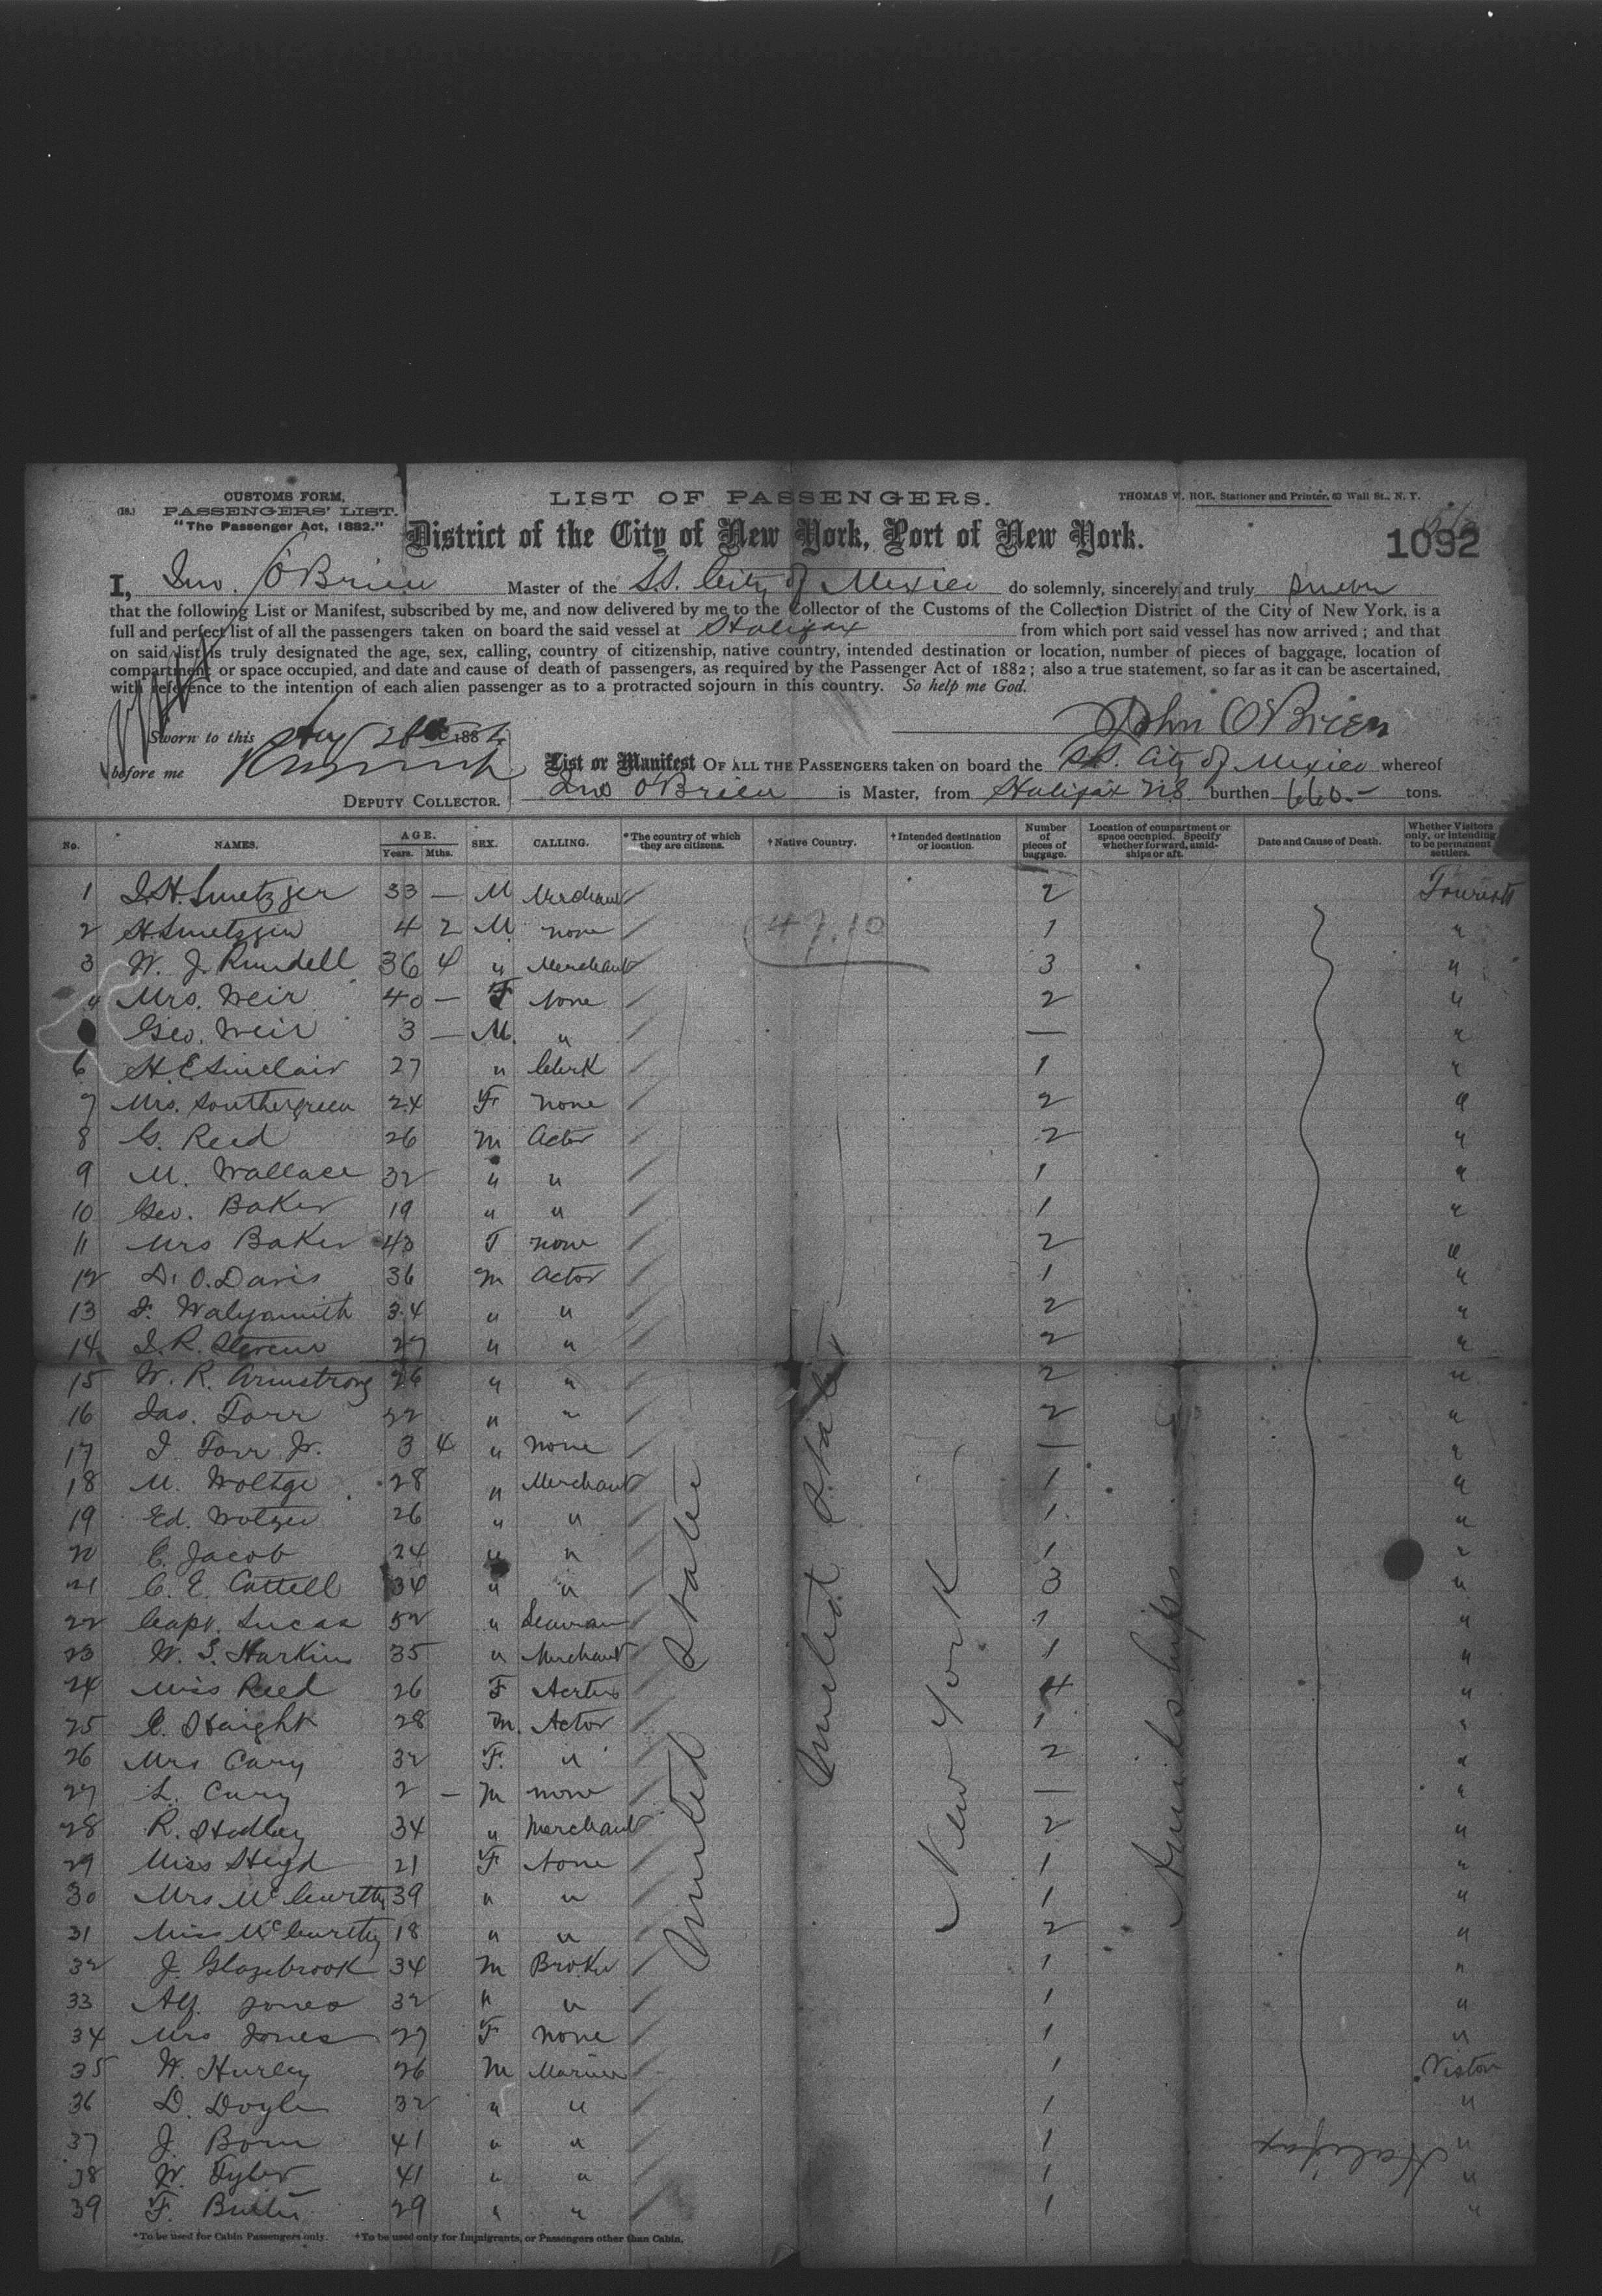 CUSTOMS FORM,
(18.) PASSENGERS' LIST.
"The Passenger Act, 1882."
LIST OF PASSENGERS.
THOMAS W. ROE, Stationer and Printer, 63 Wall St., N. Y.
District of the City of New York, Port of New York.
1092
I, Jno. O'Brien Master of the S.S. City of Mexico do solemnly, sincerely and truly swear
that the following List or Manifest, subscribed by me, and now delivered by me to the Collector of the Customs of the Collection District of the City of New York, is a
full and perfect list of all the passengers taken on board the said vessel at Halifax from which port said vessel has now arrived; and that
on said list is truly designated the age, sex, calling, country of citizenship, native country, intended destination or location, number of pieces of baggage, location of
compartment or space occupied, and date and cause of death of passengers, as required by the Passenger Act of 1882; also a true statement, so far as it can be ascertained,
with reference to the intention of each alien passenger as to a protracted sojourn in this country. So help me God.
John O'Brien
Sworn to this Aug 188
before me
DEPUTY COLLECTOR.
List or Manifest OF ALL THE PASSENGERS taken on board the SS. City of Mexico whereof
Jno O'Brien is Master, from Halifax NS burthen 660.- tons.
No. NAMES. AGE. Years. Mths. SEX. CALLING. *The country of which they are citizens. †Native Country. †Intended destination or location. Number of pieces of baggage. Location of compartment or space occupied. Specify whether forward, amidships or aft. Date and Cause of Death. Whether Visitors only, or intending to be permanent settlers.
1 J.H. Smetzger 33 — M Merchant 2 Tourist
2 H. Smetzger 4 2 M. none 1 "
3 W. J. Rundell 36 4 " Merchant 3 "
4 Mrs. Weir 40 — F None 2 "
Geo. Weir 3 — M. " — "
6 H. E. Sinclair 27 " Clerk 1 "
7 Mrs. Southergreen 24 F none 2 "
8 G. Reed 26 M Actor 2 "
9 M. Wallace 32 " " 1 "
10 Geo. Baker 19 " " 1 "
11 Mrs Baker 43 F none 2 "
12 D. O. Davis 36 M Actor 1 "
13 34 " " 2 "
14 J. R. Stevens 27 " " 2 "
15 W. R. Armstrong 26 " " 2 "
16 Jas. Torr 32 " " 2 "
17 J Torr Jr. 3 4 " none — "
18 M. Woltge 28 " Merchant 1 "
19 Ed. 26 " " 1 "
20 C. Jacob 24 " " 1 "
21 C. E. Cottell 34 " " 3 "
22 Capt. Lucas 52 " Seaman 1 "
23 W. S. Harkins 35 " Merchant 1 "
24 Miss Reed 26 F Actress 4 "
25 C. Haight 28 M. Actor 1 "
26 Mrs Cary 32 F. " 2 "
27 L. Cary 2 — M none — "
28 R. Hodley 34 " Merchant 2 "
29 Miss 21 F None 1 "
30 Mrs McCurthy 39 " " 1 "
31 Miss McCurthy 18 " " 2 "
32 J. Glazebrook 34 M Broker 1 "
33 Alf. Jones 32 " " 1 "
34 Mrs Jones 27 F none 1 "
35 W. Hurley 26 M Mariner 1 Visitor
36 D. Doyle 32 " " 1 "
37 J. Born 41 " " 1 "
38 W. Tyler 41 " " 1 "
39 F. Butler 29 " " 1 "
47.10
United States
United States
New York
Amidships
Halifax
*To be used for Cabin Passengers only. †To be used only for Immigrants, or Passengers other than Cabin.